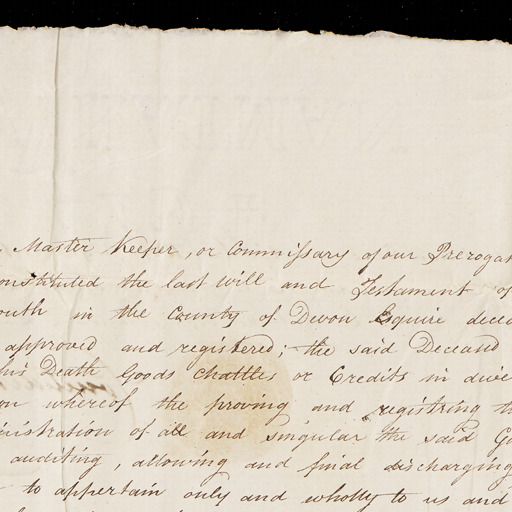 Master Keeper, or Commissary of our Prerogat
onstituted the last will and Testament of
outh in the County of Devon Esquire dece
approved and registered; the said Deceased
his Death Goods Chattles or Credits in dive
on whereof the proving and registring th
inistration of all and singular the said Go
auditing, allowing and final discharging
to appertain only and wholly to us and